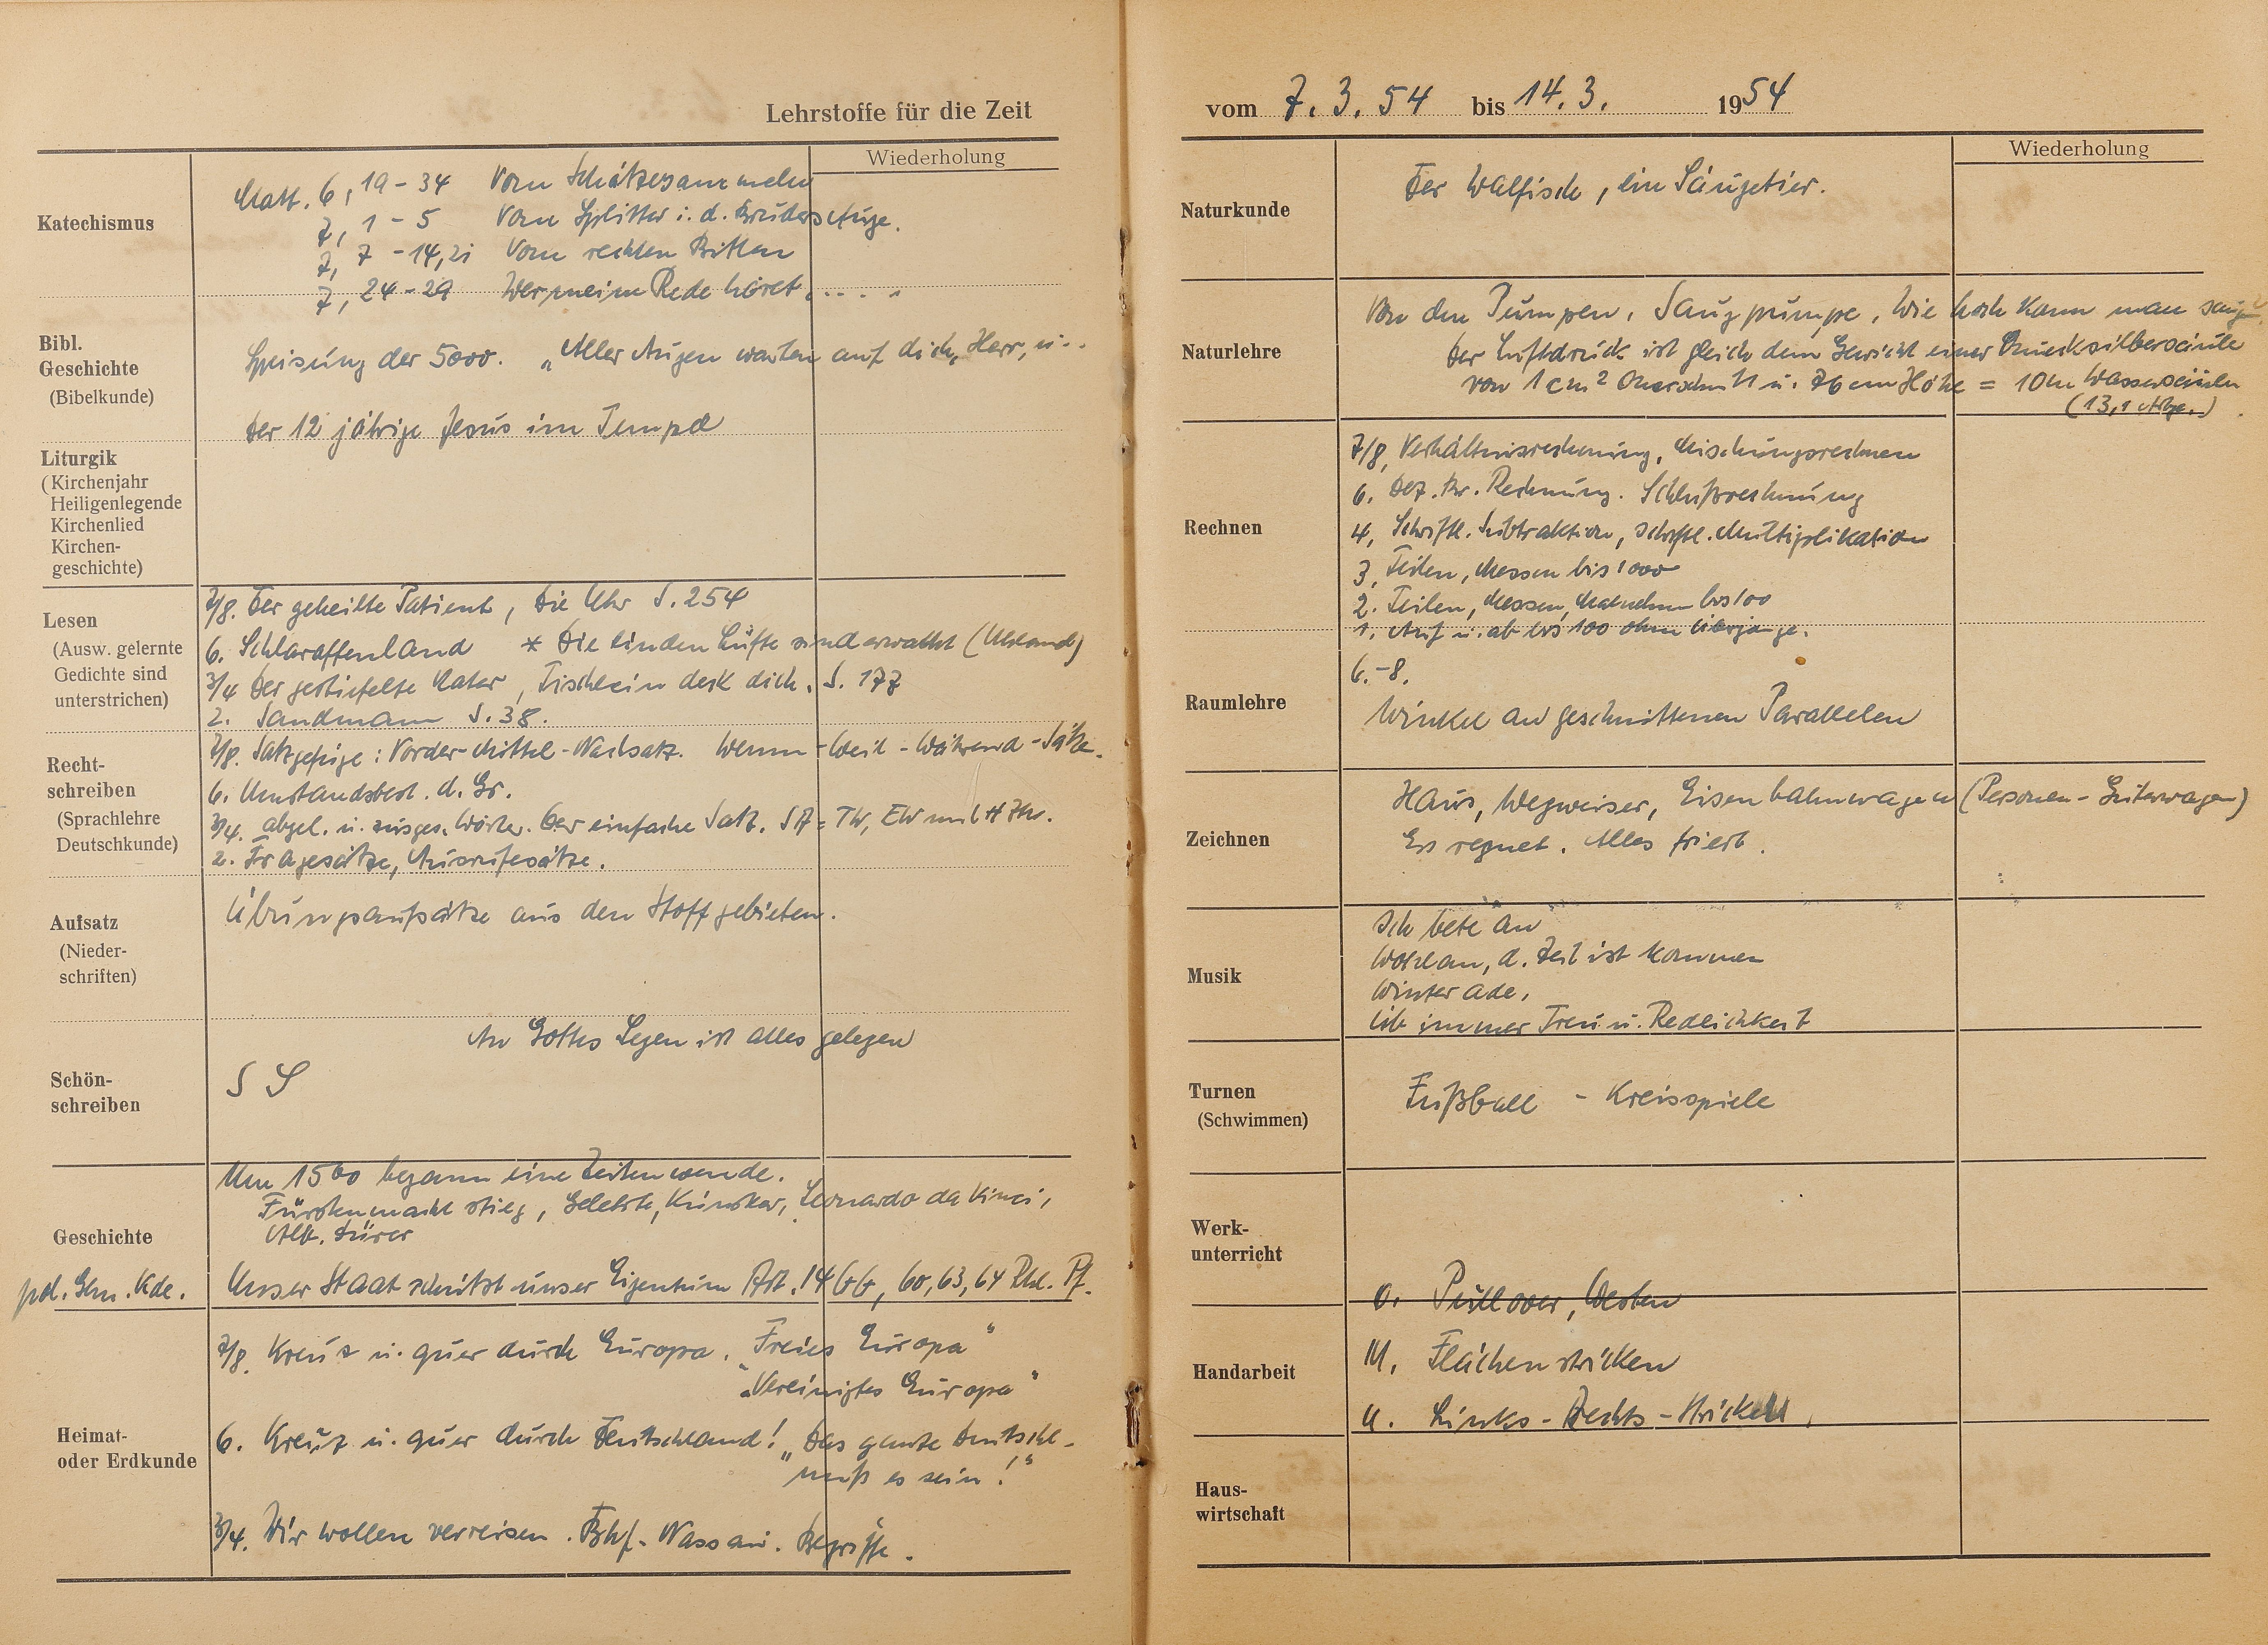 Lehrstoffe für die Zeit
Wiederholung
Katechismus
Matt. 6, 19-34 Vom Schätzesammeln
7, 1-5 Vom Splitter i. d. Bruders Auge.
7, 7-14, 21 Vom rechten Bitten
7, 24-29 Wer meine Rede höret . . . .
Bibl.
Geschichte
(Bibelkunde)
Speisung der 5000. „Aller Augen warten auf dich, Herr, u..
Der 12 jährige Jesus im Tempel
Liturgik
(Kirchenjahr
Heiligenlegende
Kirchenlied
Kirchen-
geschichte)
Lesen
(Ausw. gelernte
Gedichte sind
unterstrichen)
7/8. Der geheilte Patient, Die Uhr S. 254
6. Schlaraffenland * Die linden Lüfte sind erwacht (Uhland)
3/4 Der gestiefelte Kater, Tischlein deck dich. S. 177
2. Sandmann S. 38.
Recht-
schreiben
(Sprachlehre
Deutschkunde)
7/8. Satzgefüge: Vorder-Mittel-Nachsatz. Wenn-Weil-Während-Sätze.
6. Umstandsbest. d. Gr.
3/4. abgel. u. zusges. Wörter. Der einfache Satz. SA = TW, EW und HZw.
2. Fragesätze, Ausrufesätze.
Aufsatz
(Nieder-
schriften)
Übungsaufsätze aus den Stoffgebieten.
Schön-
schreiben
An Gottes Segen ist alles gelegen
S S
Geschichte
Um 1500 begann eine Zeitenwende.
Fürstenmacht stieg, Gelehrte, Künstler, Leonardo da Vinci,
Alb. Dürer
pol. Gem. Kde.
Unser Staat schützt unser Eigentum Art. 14 GG, 60, 63, 64 Rhl. Pf.
Heimat-
oder Erdkunde
7/8. Kreuz u. quer durch Europa. „Freies Europa"
„Vereinigtes Europa"
6. Kreuz u. quer durch Deutschland! „Das ganze Deutschl-
muß es sein!"
3/4. Wir wollen verreisen. Bhf. Nassau. Begriffe.
vom 7. 3. 54 bis 14. 3. 1954
Wiederholung
Naturkunde
Der Walfisch, ein Säugetier.
Naturlehre
Von den Pumpen, Saugpumpe, Wie hoch kann man saug
Der Luftdruck ist gleich dem Gewicht einer Quecksilbersäule
von 1 cm² Querschnitt u. 76 cm Höhe = 10 m Wassersäulen
Rechnen
7/8, Verhältnisrechnung, Mischungsrechnen
6. Dez. Br. Rechnung. Schlußrechnung
4, Schriftl. Subtraktion, schrftl. Multiplikation
3, Teilen, Messen bis 1000
2. Teilen, Messen, Malnehmen bis 100
1. Auf u. ab bis 100 ohne Übergänge.
Raumlehre
6.-8.
Winkel an geschnittenen Parallelen
Zeichnen
Haus, Wegweiser, Eisenbahnwagen (Personen-Güterwagen)
Es regnet. Alles friert.
Musik
Ich bete an
Wohlan, d. Zeit ist kommen
Winter ade,
Üb immer Treu u. Redlichkeit
Turnen
(Schwimmen)
Fußball - Kreisspiele
Werk-
unterricht
Handarbeit
O. Pullover, Westen
M. Flächenstricken
U. Links-Rechts-Stricken.
Haus-
wirtschaft